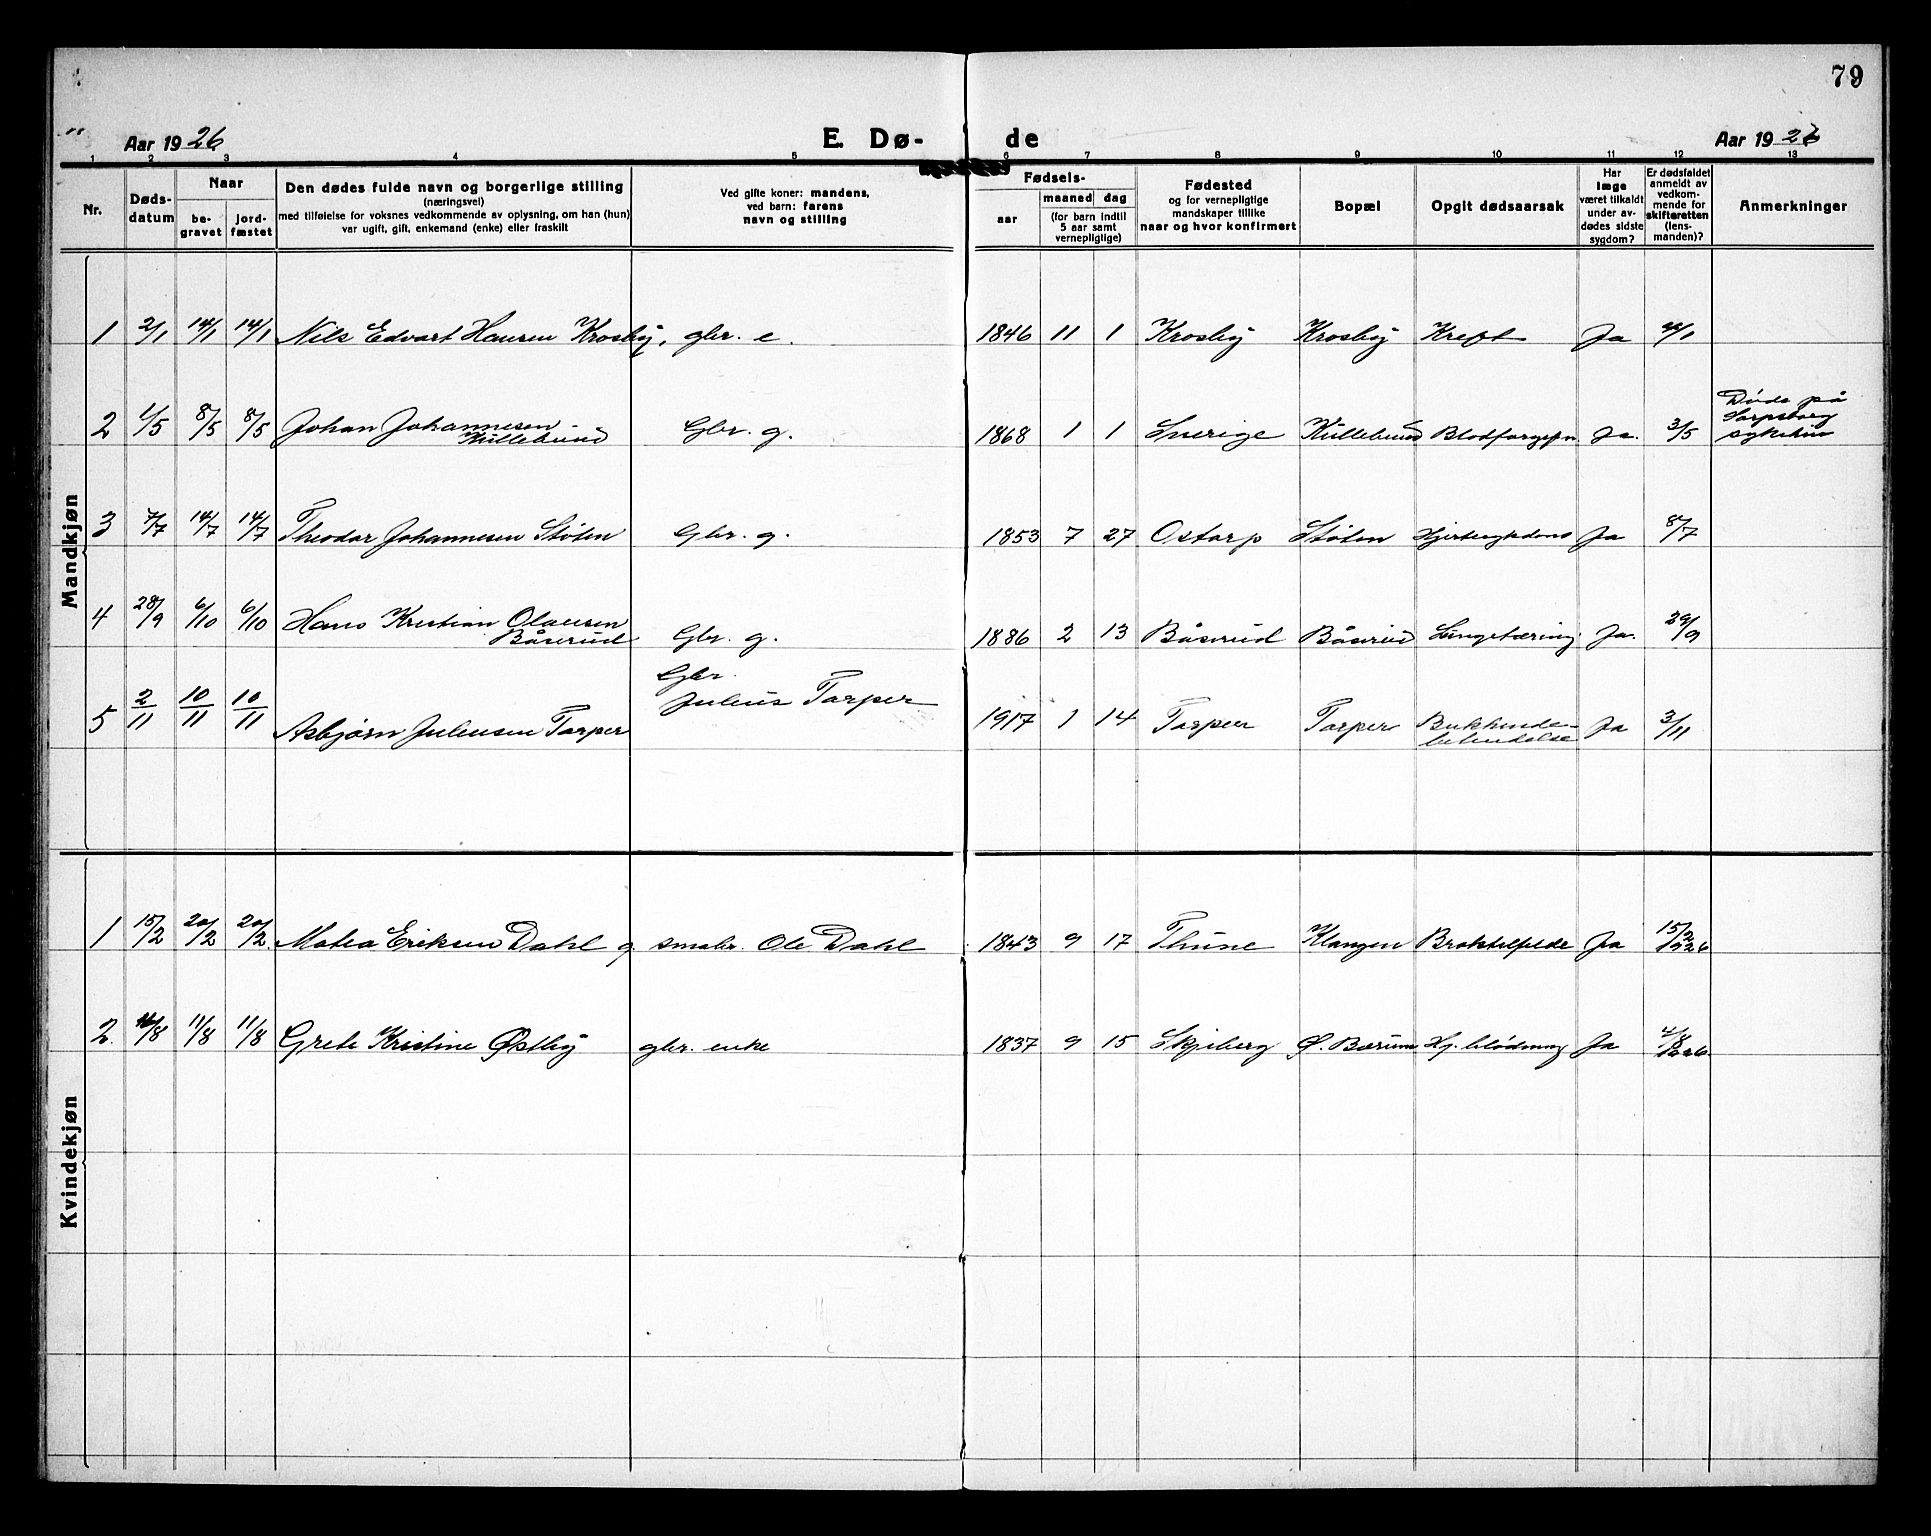 79
Aar 1926
E. Dø- de
Aar 1926
1 2 3 4 5 6 7 8 9 10 11 12 13
Nr.
Døds-
datum
Naar
be-
gravet
jord-
fæstet
Den dødes fulde navn og borgerlige stilling
(næringsvei)
med tilføielse for voksnes vedkommende av oplysning, om han (hun)
var ugift, gift, enkemand (enke) eller fraskilt
Ved gifte koner: mandens,
ved barn: farens
navn og stilling
Fødsels-
aar
maaned dag
(for barn indtil
5 aar samt
vernepligtige)
Fødested
og for vernepligtige
mandskaper tillike
naar og hvor konfirmert
Bopæl
Opgit dødsaarsak
Har
læge
været tilkaldt
under av-
dødes sidste
sygdom?
Er dødsfaldet
anmeldt av
vedkom-
mende for
skifteretten
(lens-
manden)?
Anmerkninger
Mandkjøn
1 2/1 14/1 14/1 Nils Edvart Hansen Krosby, gbr. e. 1846 11 1 Krosby Krosby Kreft Ja
2 1/5 8/5 8/5 Johan Johannesen
Kullebund Gbr. g. 1868 1 1 Sverige Kullebund Blodforgifn. Ja. 3/5
Døde på
Sarpsborg
sykehus
3 7/7 14/7 14/7 Theodor Johannesen Støten Gbr. g. 1853 7 27 Ostorp Støten Hjertesykdom Ja 8/7
4 28/9 6/10 6/10 Hans Kristian Olausen
Båserud Gbr. g. 1886 2 13 Båserud Båserud Lungetæring. Ja. 29/9
5 2/11 10/11 10/11 Asbjørn Juliussen Torper
Gbr.
Julius Torper
1917 1 14 Torper Torper Bukhinde-
betendelse Ja 3/11
Kvindekjøn
1 15/2 20/2 20/2 Matea Eriksen Dahl g. smabr. Ole Dahl 1843 9 17 Thune Klangen Ja 15/2
1926
2. 11/8 11/8 Grete Kristine Østby gbr. enke 1837 9 15 Skjeberg Ø. Bærum Hj. blødning Ja 4/8
1926.